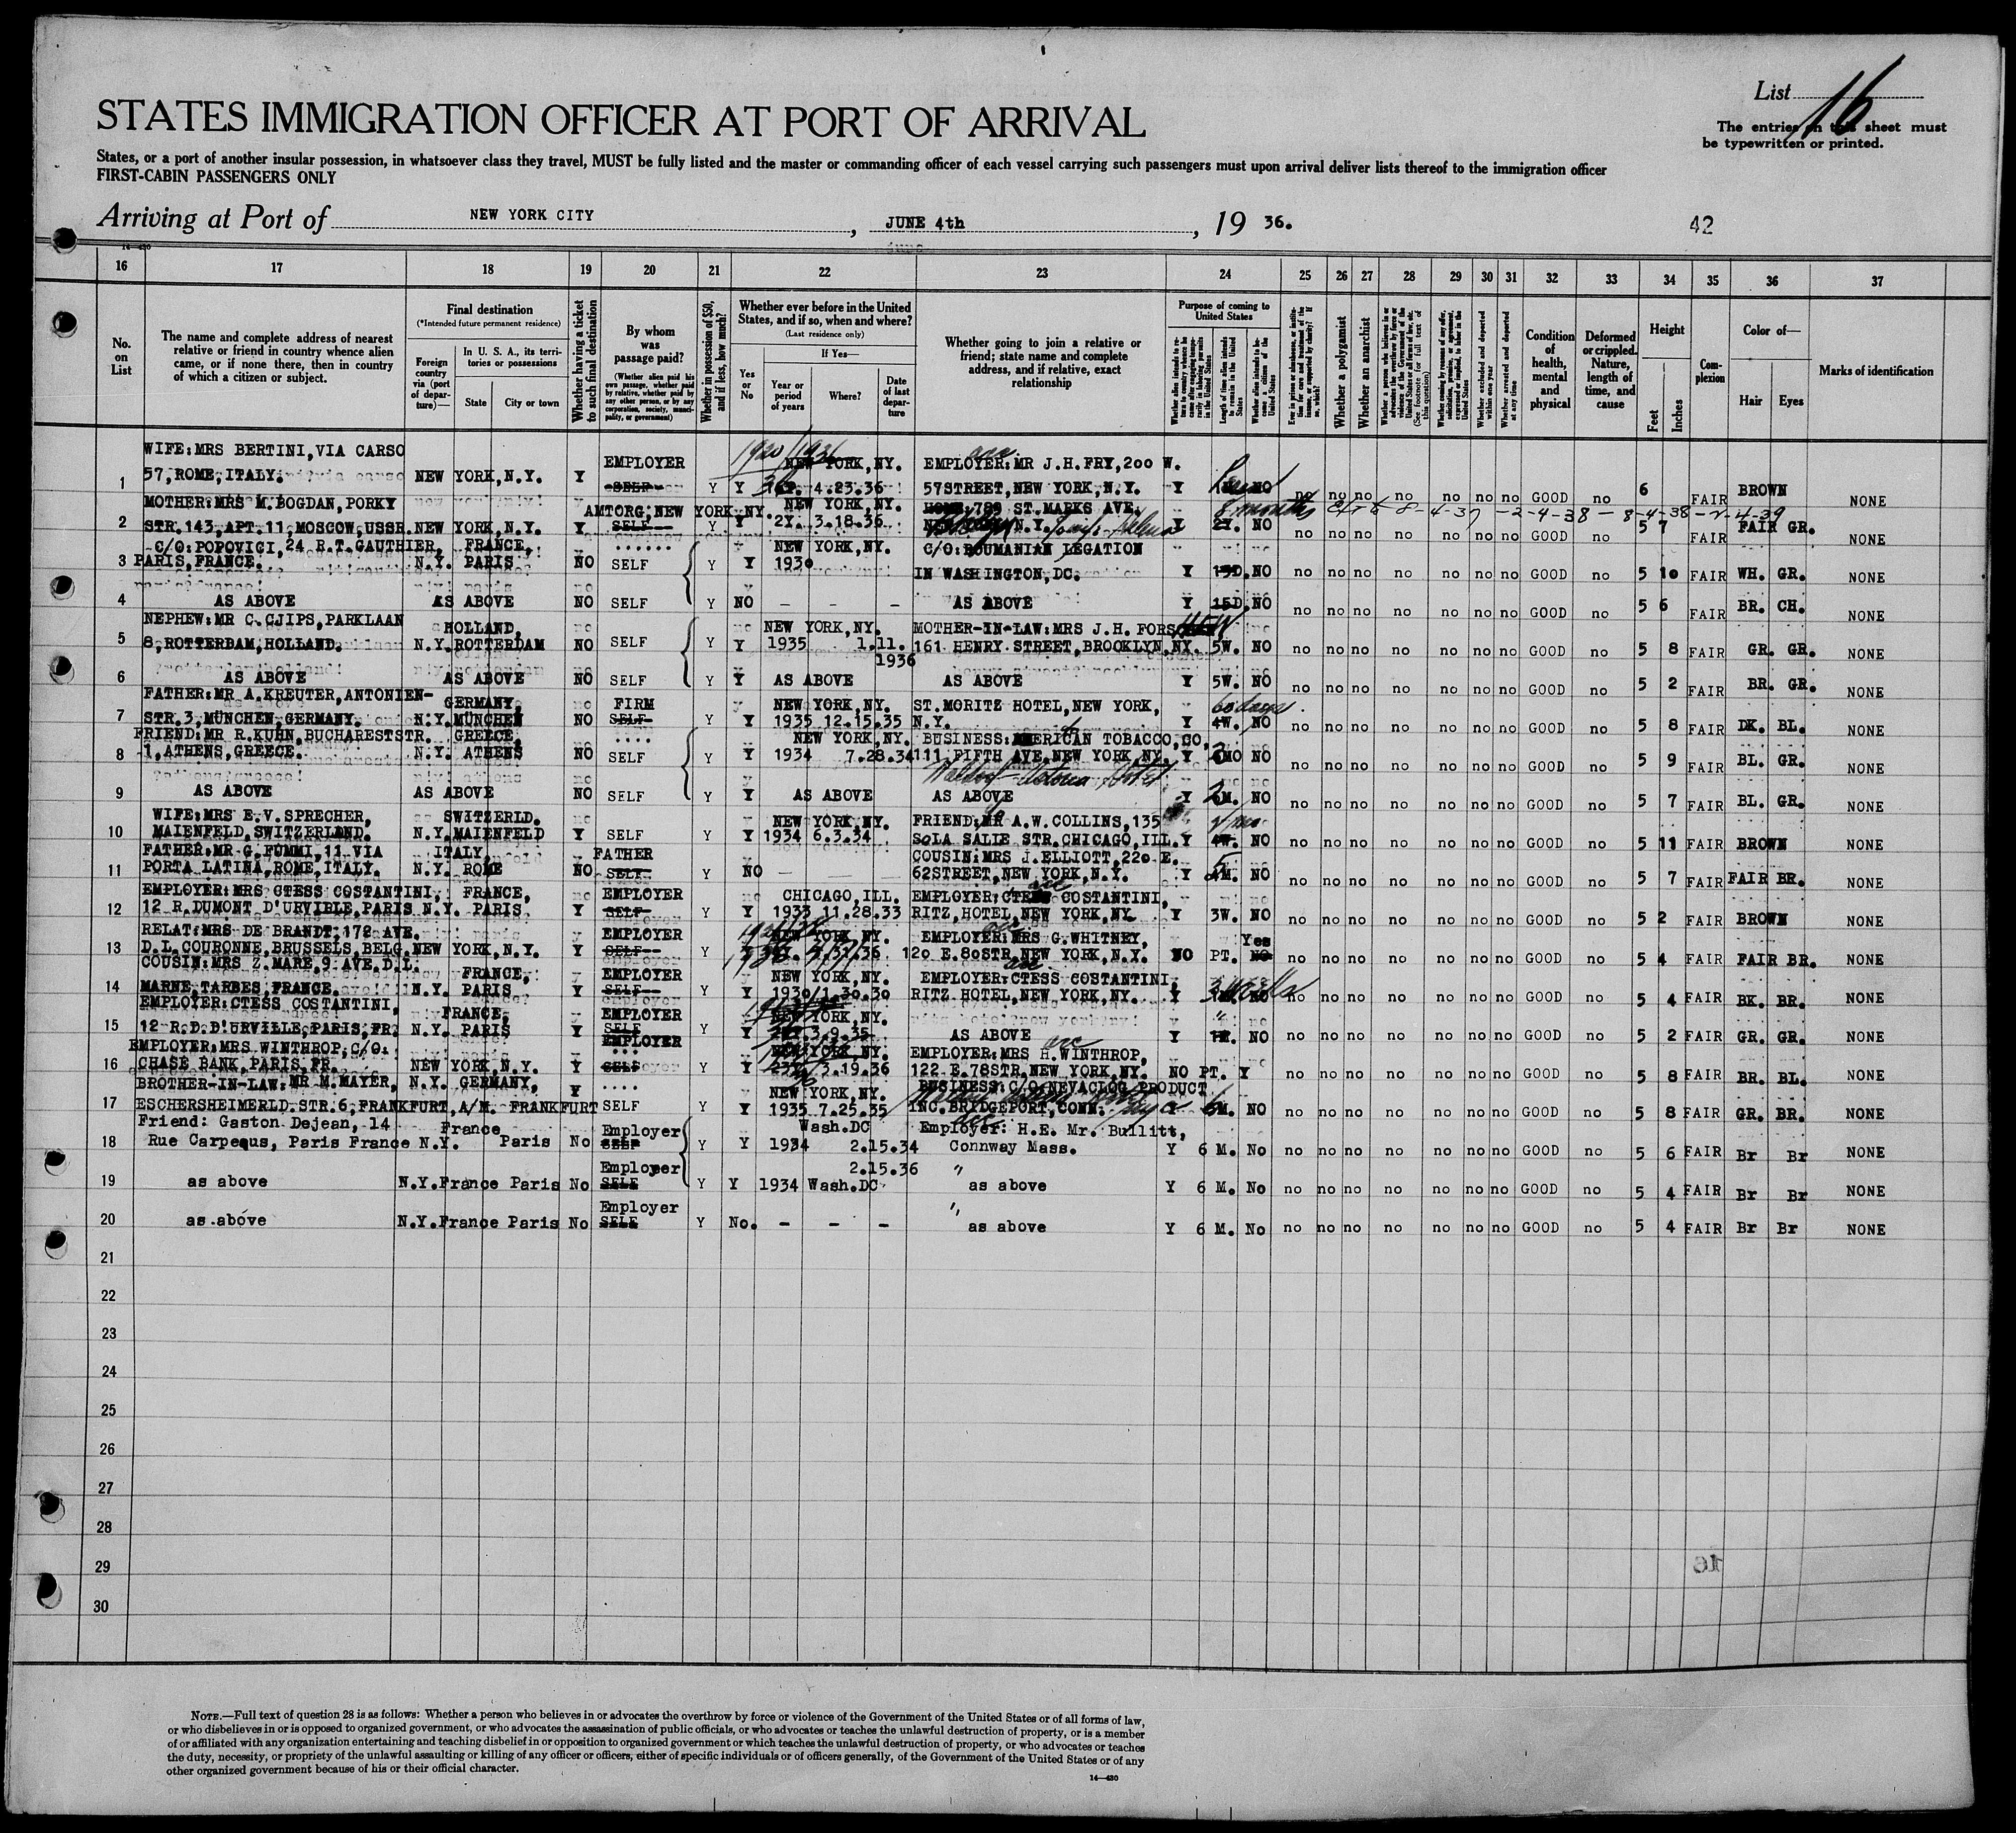 List 16
STATES IMMIGRATION OFFICER AT PORT OF ARRIVAL
The entries on this sheet must
be typewritten or printed.
States, or a port of another insular possession, in whatsoever class they travel, MUST be fully listed and the master or commanding officer of each vessel carrying such passengers must upon arrival deliver lists thereof to the immigration officer
FIRST-CABIN PASSENGERS ONLY
Arriving at Port of NEW YORK CITY, JUNE 4th, 19 36.
42
14—430
16 17 18 19 20 21 22 23 24 25 26 27 28 29 30 31 32 33 34 35 36 37
No. on List
The name and complete address of nearest relative or friend in country whence alien came, or if none there, then in country of which a citizen or subject.
Final destination
(*Intended future permanent residence)
Foreign country via (port of departure)—
In U. S. A., its territories or possessions
State City or town
Whether having a ticket to such final destination
By whom was passage paid?
(Whether alien paid his own passage, whether paid by relative, whether paid by any other person, or by any corporation, society, municipality, or government)
Whether in possession of $50, and if less, how much?
Whether ever before in the United States, and if so, when and where?
(Last residence only)
Yes or No
If Yes—
Year or period of years
Where?
Date of last departure
Whether going to join a relative or friend; state name and complete address, and if relative, exact relationship
Purpose of coming to United States
Length of time alien intends to remain in the United States
Whether alien intends to become a citizen of the United States
Whether a polygamist
Whether an anarchist
Whether excluded and deported within one year
Whether arrested and deported at any time
Condition of health, mental and physical
Deformed or crippled. Nature, length of time, and cause
Height
Feet Inches
Complexion
Color of—
Hair Eyes
Marks of identification
WIFE:MRS BERTINI,VIA CARSO EMPLOYER 1920/1921 NEW YORK,NY. EMPLOYER:MR J.H.FRY,200 W.
1 57,ROME,ITALY. NEW YORK,N.Y. Y SELF Y Y 4.23.36 57STREET,NEW YORK,N.Y. Y NO no no no no no no no GOOD no 6 FAIR BROWN NONE
MOTHER:MRS M.BOGDAN,PORKY AMTORG,NEW YORK NY. NEW YORK,NY. HOME,789 ST.MARKS AVE. 8 months 8-4-37 -2-4-38 - 8-4-38 - 2-4-39
2 STR.143,APT.11,MOSCOW,USSR. NEW YORK,N.Y. Y SELF Y Y 2Y. 3.18.36 N.Y. Y 2Y. NO no no no no no no no GOOD no 5 7 FAIR FAIR GR. NONE
C/O:POPOVICI,24 R.T.GAUTHIER, FRANCE, NEW YORK,NY. C/O:ROUMANIAN LEGATION
3 PARIS,FRANCE. N.Y. PARIS NO SELF Y Y 1930 IN WASHINGTON,DC. Y 15D. NO no no no no no no no GOOD no 5 10 FAIR WH. GR. NONE
4 AS ABOVE AS ABOVE NO SELF Y NO – – – AS ABOVE Y 15D. NO no no no no no no no GOOD no 5 6 FAIR BR. CH. NONE
NEPHEW:MR C.CJIPS,PARKLAAN HOLLAND, NEW YORK,NY. MOTHER-IN-LAW:MRS J.H.
5 8,ROTTERDAM,HOLLAND. N.Y. ROTTERDAM NO SELF Y Y 1935 1.11. 1936 161 HENRY STREET,BROOKLYN,NY. 5W. NO no no no no no no no GOOD no 5 8 FAIR GR. GR. NONE
6 AS ABOVE AS ABOVE NO SELF Y Y AS ABOVE AS ABOVE Y 5W. NO no no no no no no no GOOD no 5 2 FAIR BR. GR. NONE
FATHER:MR A.KREUTER,ANTONIEN- GERMANY, FIRM NEW YORK,NY. ST.MORITZ HOTEL,NEW YORK, 60 days
7 STR.3,MÜNCHEN,GERMANY. N.Y. MÜNCHEN NO SELF Y Y 1935 12.15.35 N.Y. Y 4W. NO no no no no no no no GOOD no 5 8 FAIR DK. BL. NONE
FRIEND:MR R.KUHN,BUCHARESTSTR. GREECE, NEW YORK,NY. BUSINESS:AMERICAN TOBACCO,CO,
8 1,ATHENS,GREECE. N.Y. ATHENS NO SELF Y Y 1934 7.28.34 111 FIFTH AVE,NEW YORK,NY. Y MO NO no no no no no no no GOOD no 5 9 FAIR BL. GR. NONE
Waldorf Astoria Hotel
9 AS ABOVE AS ABOVE NO SELF Y Y AS ABOVE AS ABOVE Y M. NO no no no no no no no GOOD no 5 7 FAIR BL. GR. NONE
WIFE:MRS E.V.SPRECHER, SWITZERLD. NEW YORK,NY. FRIEND:MR A.W.COLLINS,135
10 MAIENFELD,SWITZERLAND. N.Y. MAIENFELD Y SELF Y Y 1934 6.3.34 SoLA SALLE STR.CHICAGO,ILL. Y 4W. NO no no no no no no no GOOD no 5 11 FAIR BROWN NONE
FATHER:MR G.FUMMI,11 VIA ITALY, FATHER COUSIN:MRS J.ELLIOTT,220 E.
11 PORTA LATINA,ROME,ITALY. N.Y. ROME NO SELF Y NO – – – 62STREET,NEW YORK,N.Y. Y M. NO no no no no no no no GOOD no 5 7 FAIR FAIR BR. NONE
EMPLOYER:MRS CTESS COSTANTINI, FRANCE, EMPLOYER CHICAGO,ILL. EMPLOYER:CTESS COSTANTINI,
12 12 R.DUMONT D'URVIBLE,PARIS N.Y. PARIS Y SELF Y Y 1933 11.28.33 RITZ,HOTEL,NEW YORK,NY. Y 3W. NO no no no no no no no GOOD no 5 2 FAIR BROWN NONE
RELAT:MRS DE BRANDT,172 AVE. EMPLOYER NEW YORK,NY. EMPLOYER:MRS G.WHITNEY, Yes
13 D.L.COURONNE,BRUSSELS,BELG. NEW YORK,N.Y. Y SELF Y 120 E.80STR,NEW YORK,N.Y. NO PT. NO no no no no no no no GOOD no 5 4 FAIR FAIR BR. NONE
COUSIN:MRS Z.MARE,9 AVE.D.L. FRANCE, EMPLOYER NEW YORK,NY. EMPLOYER:CTESS COSTANTINI,
14 MARNE,TARBES,FRANCE. N.Y. PARIS Y SELF Y Y 1930/1.30.30 RITZ HOTEL,NEW YORK,NY. Y NO no no no no no no no GOOD no 5 4 FAIR BK. BR. NONE
EMPLOYER:CTESS COSTANTINI, FRANCE, EMPLOYER NEW YORK,NY.
15 12 R.D.D'URVILLE,PARIS,FR. N.Y. PARIS Y SELF Y Y 3.9.35 AS ABOVE Y NO no no no no no no no GOOD no 5 2 FAIR GR. GR. NONE
EMPLOYER:MRS WINTHROP,C/O. EMPLOYER NEW YORK,NY. EMPLOYER:MRS H.WINTHROP,
16 CHASE BANK,PARIS,FR. NEW YORK,N.Y. Y SELF Y Y 3.19.36 122 E.78STR,NEW YORK,NY. NO PT. Y no no no no no no no GOOD no 5 8 FAIR BR. BL. NONE
BROTHER-IN-LAW:MR M.MAYER, N.Y. GERMANY, Y NEW YORK,NY. BUSINESS:C/O NEVACLOG PRODUCT
17 ESCHERSHEIMERLD.STR.6,FRANKFURT,A/M. FRANKFURT SELF Y Y 1935 7.25.35 INC.BRIDGEPORT,CONN. 6M. NO no no no no no no no GOOD no 5 8 FAIR GR. BR. NONE
Friend: Gaston Dejean, 14 France Employer Wash.DC Employer: H.E. Mr. Bullitt,
18 Rue Carpeaus, Paris France N.Y. Paris No SELF Y Y 1934 2.15.34 Connway Mass. Y 6 M. No no no no no no no no GOOD no 5 6 FAIR Br Br NONE
Employer 2.15.36 "
19 as above N.Y.France Paris No SELF Y Y 1934 Wash.DC as above Y 6 M. No no no no no no no no GOOD no 5 4 FAIR Br Br NONE
Employer "
20 as above N.Y.France Paris No SELF Y No. – – – as above Y 6 M. No no no no no no no no GOOD no 5 4 FAIR Br Br NONE
21
22
23
24
25
26
27
28
29
30
16
NOTE.—Full text of question 28 is as follows: Whether a person who believes in or advocates the overthrow by force or violence of the Government of the United States or of all forms of law,
or who disbelieves in or is opposed to organized government, or who advocates the assassination of public officials, or who advocates or teaches the unlawful destruction of property, or is a member
of or affiliated with any organization entertaining and teaching disbelief in or opposition to organized government or which teaches the unlawful destruction of property, or who advocates or teaches
the duty, necessity, or propriety of the unlawful assaulting or killing of any officer or officers, either of specific individuals or of officers generally, of the Government of the United States or of any
other organized government because of his or their official character.
14—430